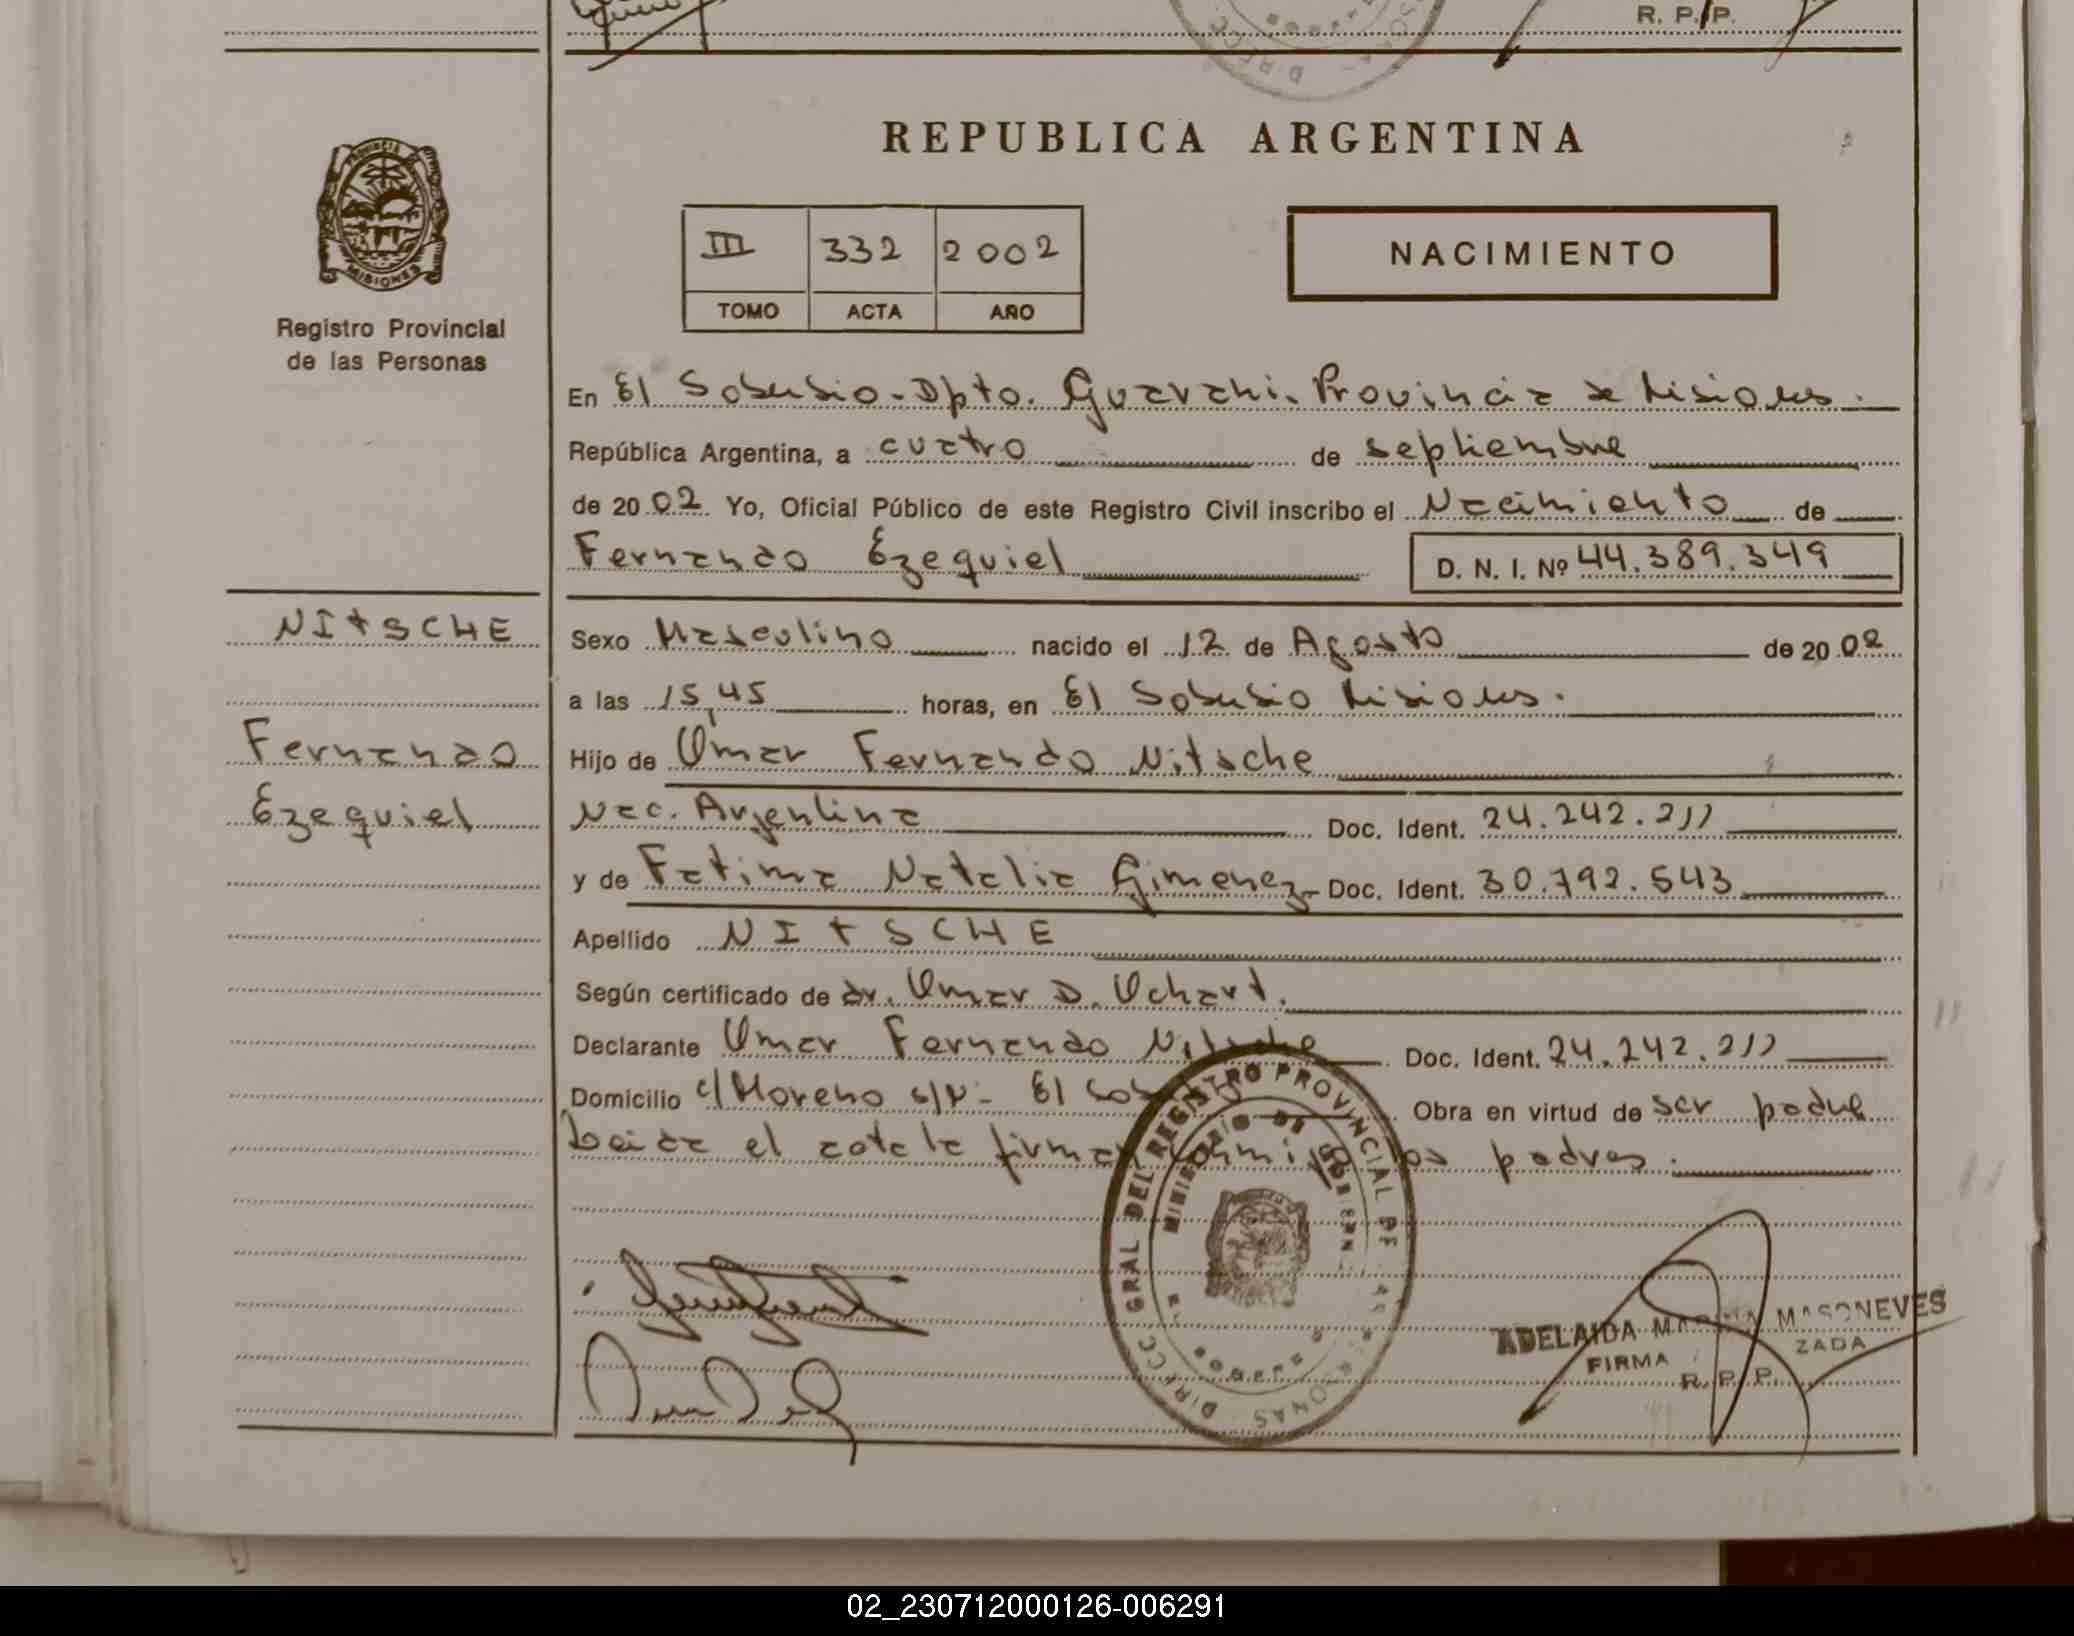 R. P. P.
REPUBLICA ARGENTINA
PROVINCIA DE
MISIONES
Registro Provincial
de las Personas
III 332 2002
TOMO ACTA AÑO
NACIMIENTO
En El Soberbio - Dpto. Guarani. Provincia de Misiones.
República Argentina, a cuatro de septiembre
de 2002. Yo, Oficial Público de este Registro Civil inscribo el Nacimiento de
Fernando Ezequiel D. N. I. Nº 44.389.349
NITSCHE
Sexo Masculino nacido el 12 de Agosto de 2002
a las 15,45 horas, en El Soberbio Misiones.
Fernando
Hijo de Omar Fernando Nitsche
Ezequiel
Nac. Argentina Doc. Ident. 24.242.211
y de Fatima Natalia Gimenez - Doc. Ident. 30.792.543
Apellido NITSCHE
Según certificado de dr. Omar D. Ochart.
Declarante Omar Fernando Nitsche Doc. Ident. 24.242.211
Domicilio c/Moreno s/N - El Soberbio Obra en virtud de ser padre
Leida el acta la firman los padres.
DIRECC GRAL DEL REGISTRO PROVINCIAL DE LAS PERSONAS
MINISTERIO DE GOBIERNO
ADELAIDA MASONEVES
FIRMA
R. P. P.
02_230712000126-006291